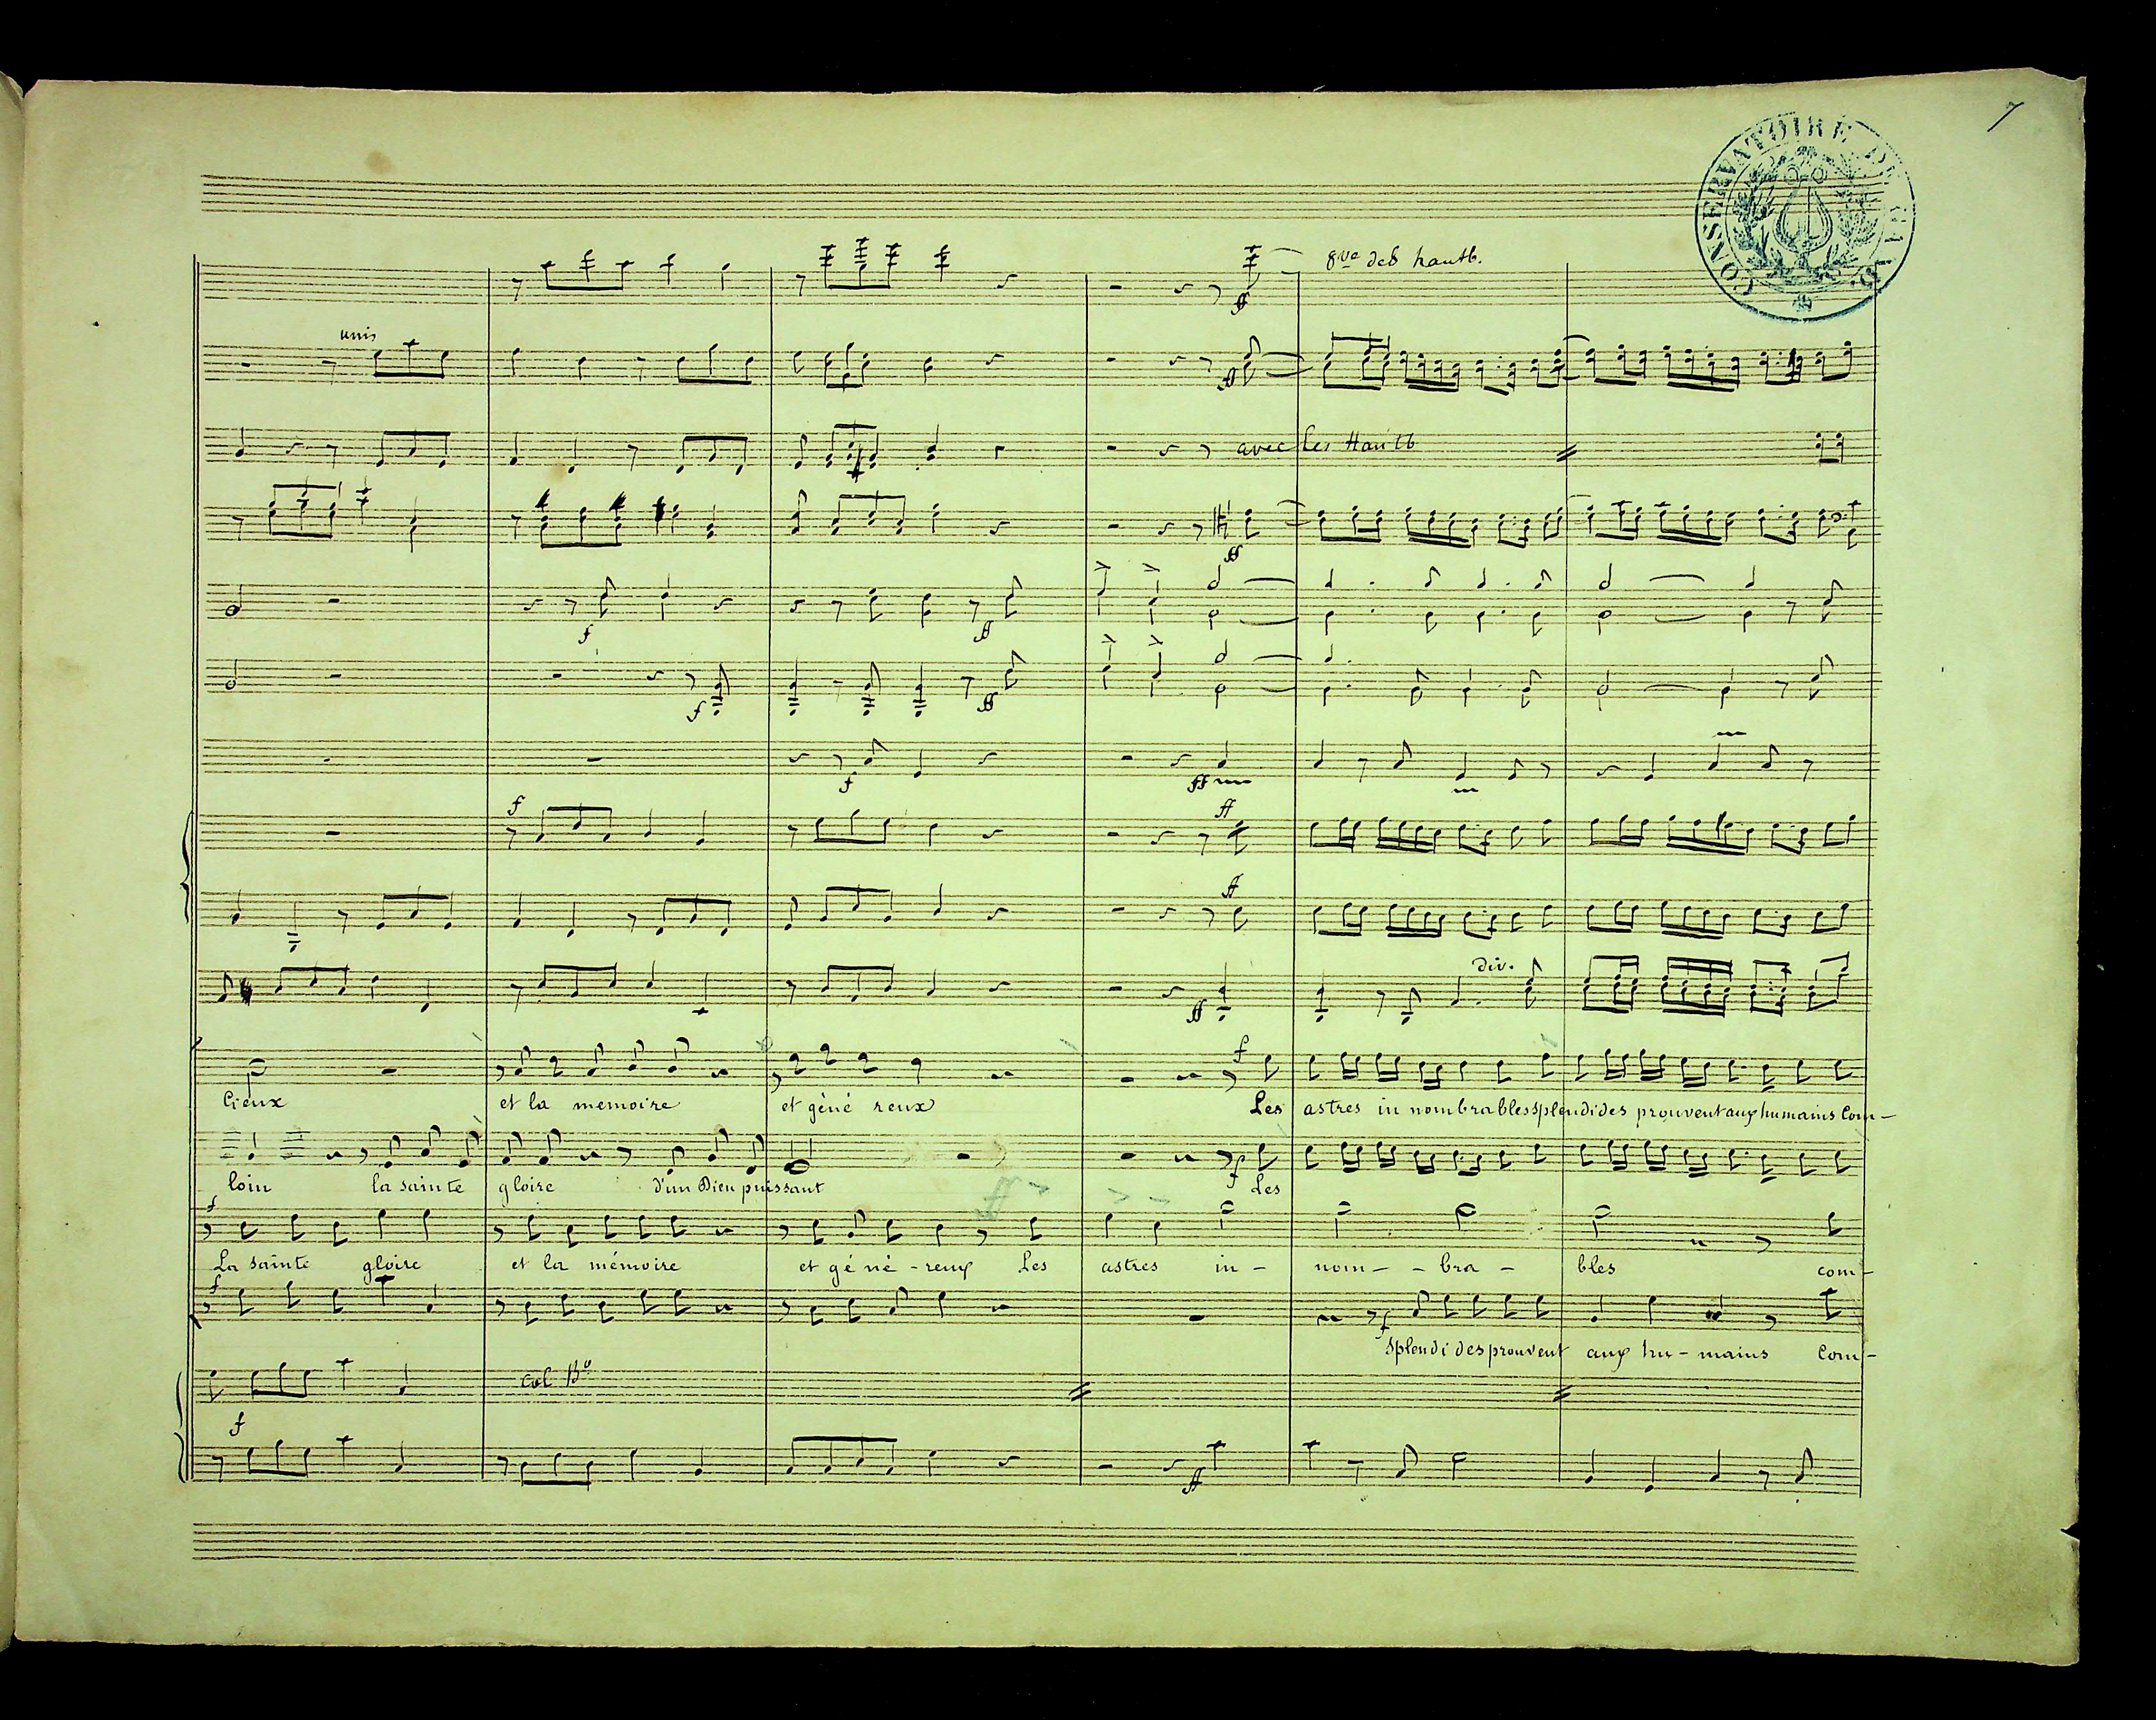 7
CONSERVATOIRE DE
8va des hautb.
unis
ff
ff
avec les Hautb
ff
f
ff
f
ff
f
ff
f
ff
ff
div.
ff
f
lieux et la memoire et géné reux Les astres in nombrables splendides prouvent aux humains Com-
loin la sainte gloire d'un Dieu puissant Les
f
ff
f
La sainte gloire et la mémoire et gé né - reux Les astres in - nom - - bra - bles com-
f
f
Splendi des prouvent aux hu - mains Com-
col Bo
f
ff